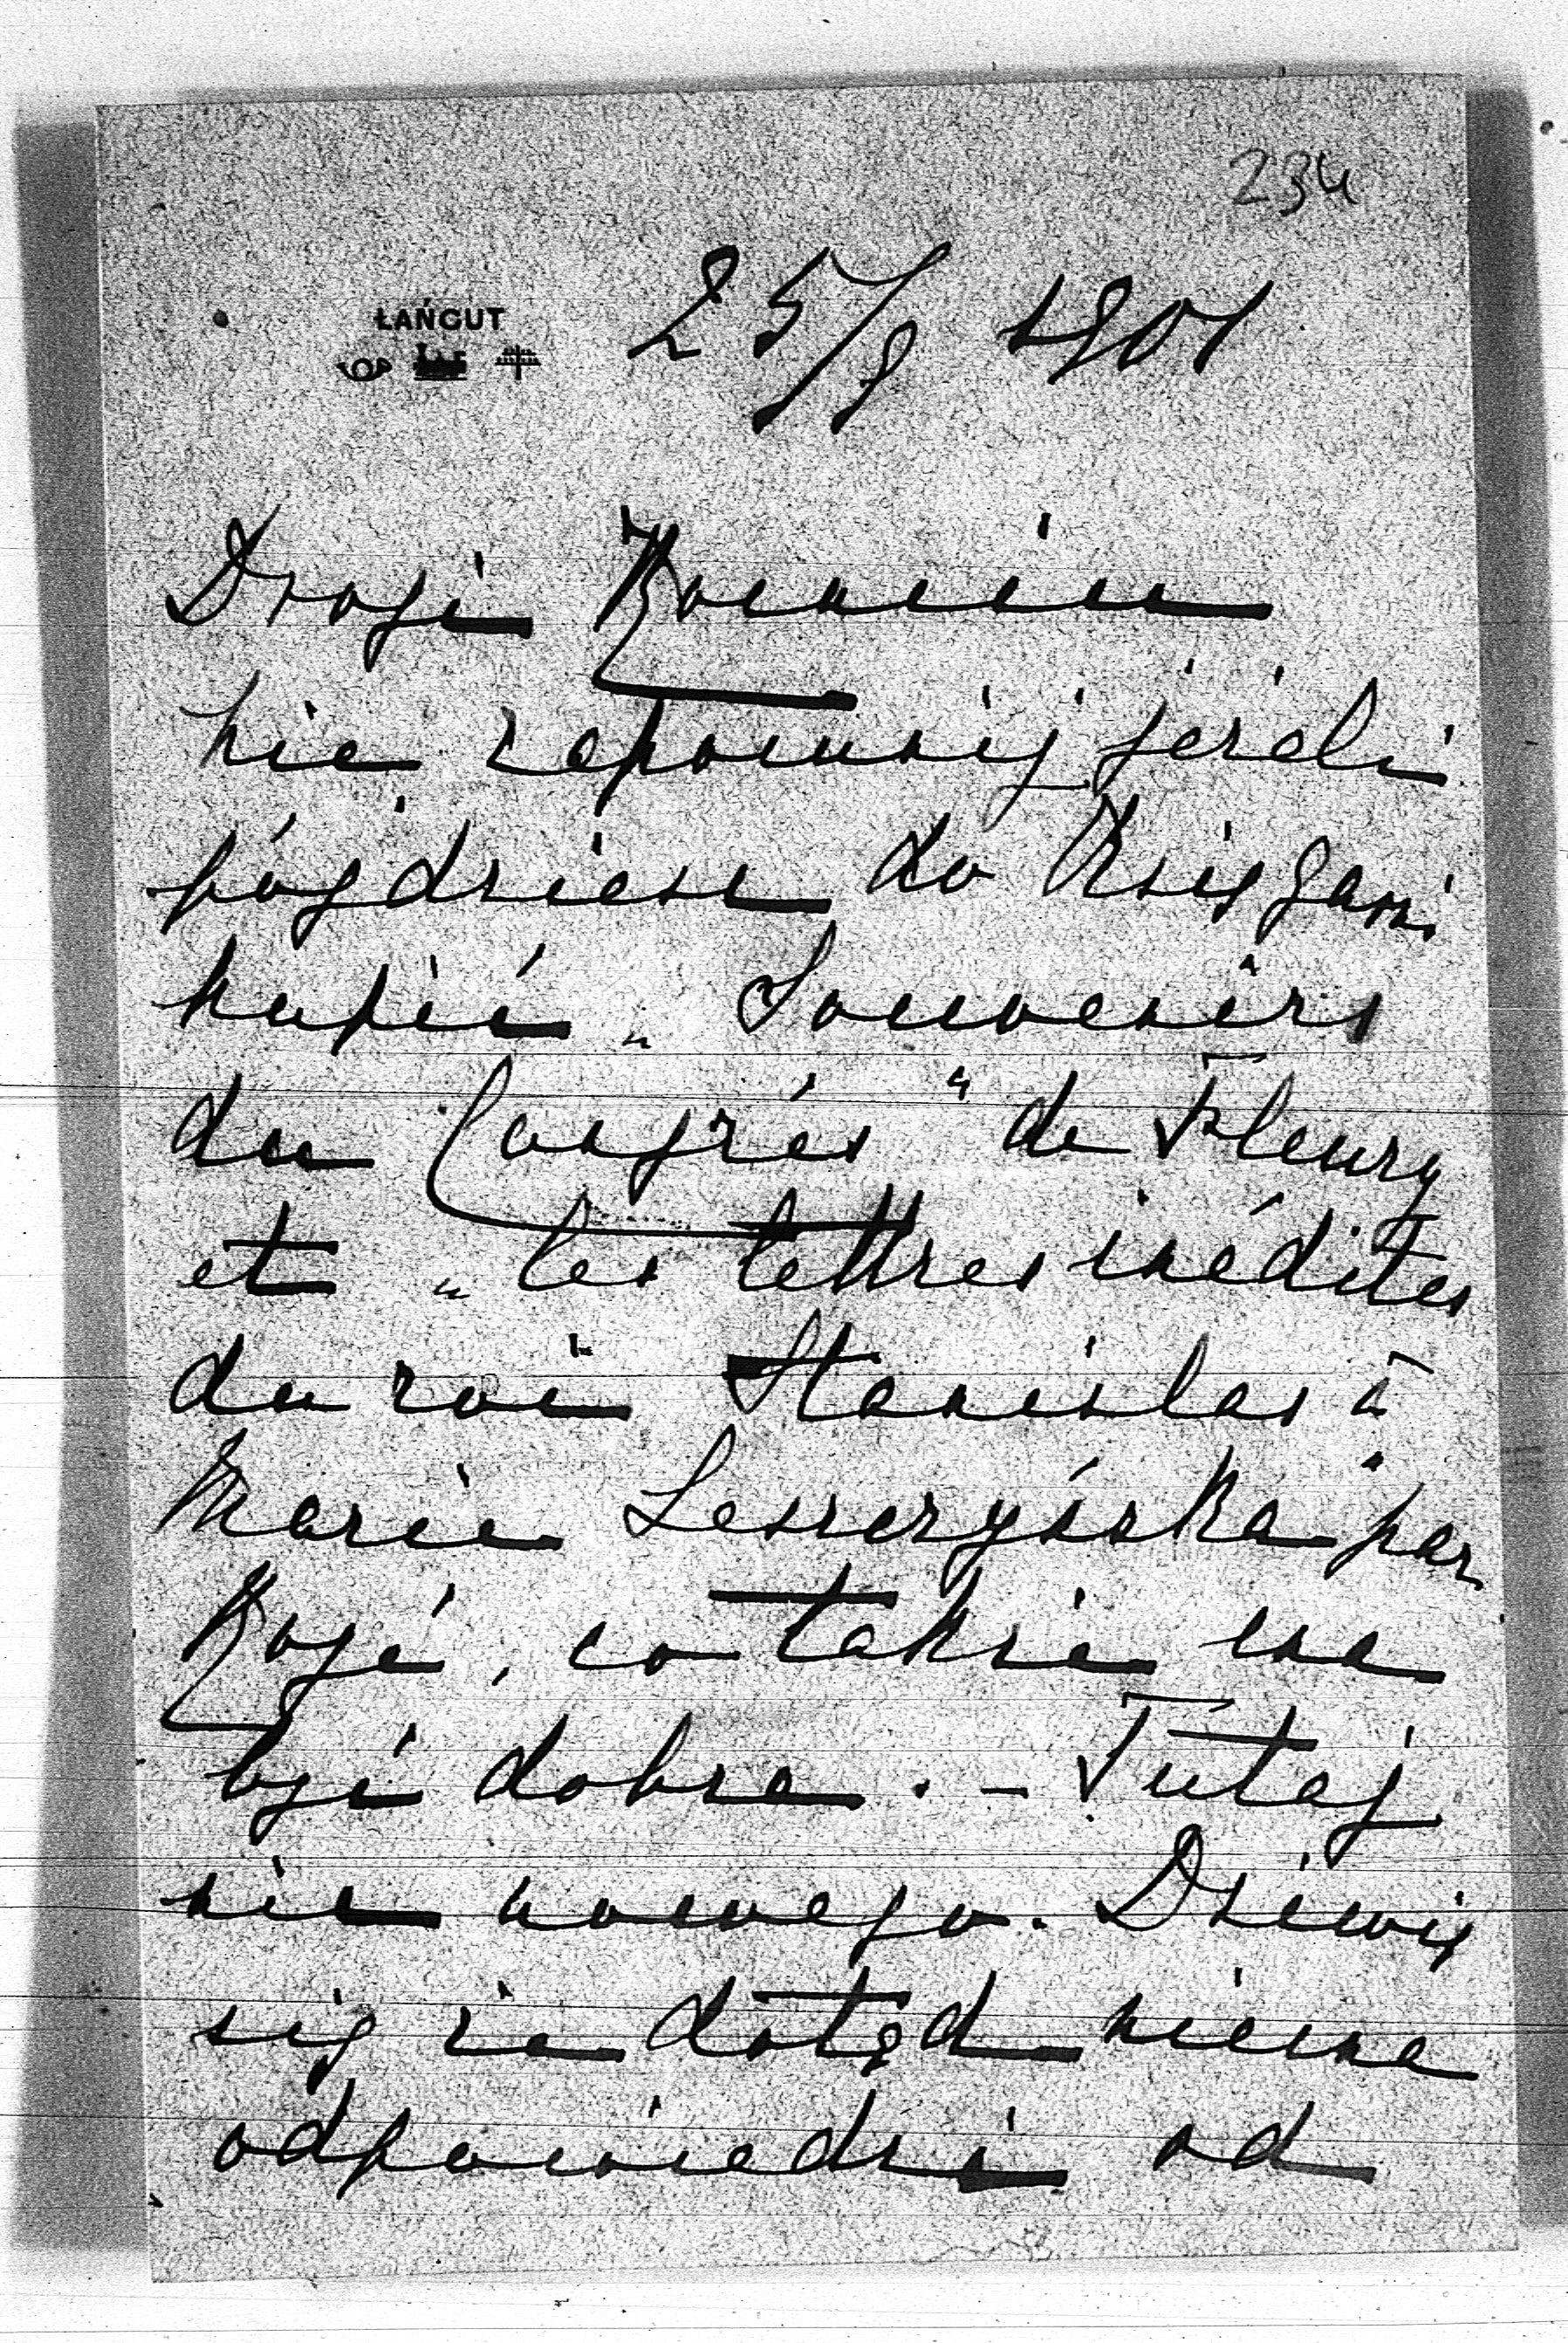 234
ŁAŃCUT
25/8 1901
Drogi Romciu
nie zapomnij jeżeli
pójdziesz do Księgarni
kupić „Souvenirs
du Congrès" de Fleury
et „les lettres inédites
du roi Stanislas à
Marie Leszczyńska" par
Boyé, co także ma
być dobre. – Tutaj
nic nowego. Dziwię
się że dotąd niema
odpowiedzi od